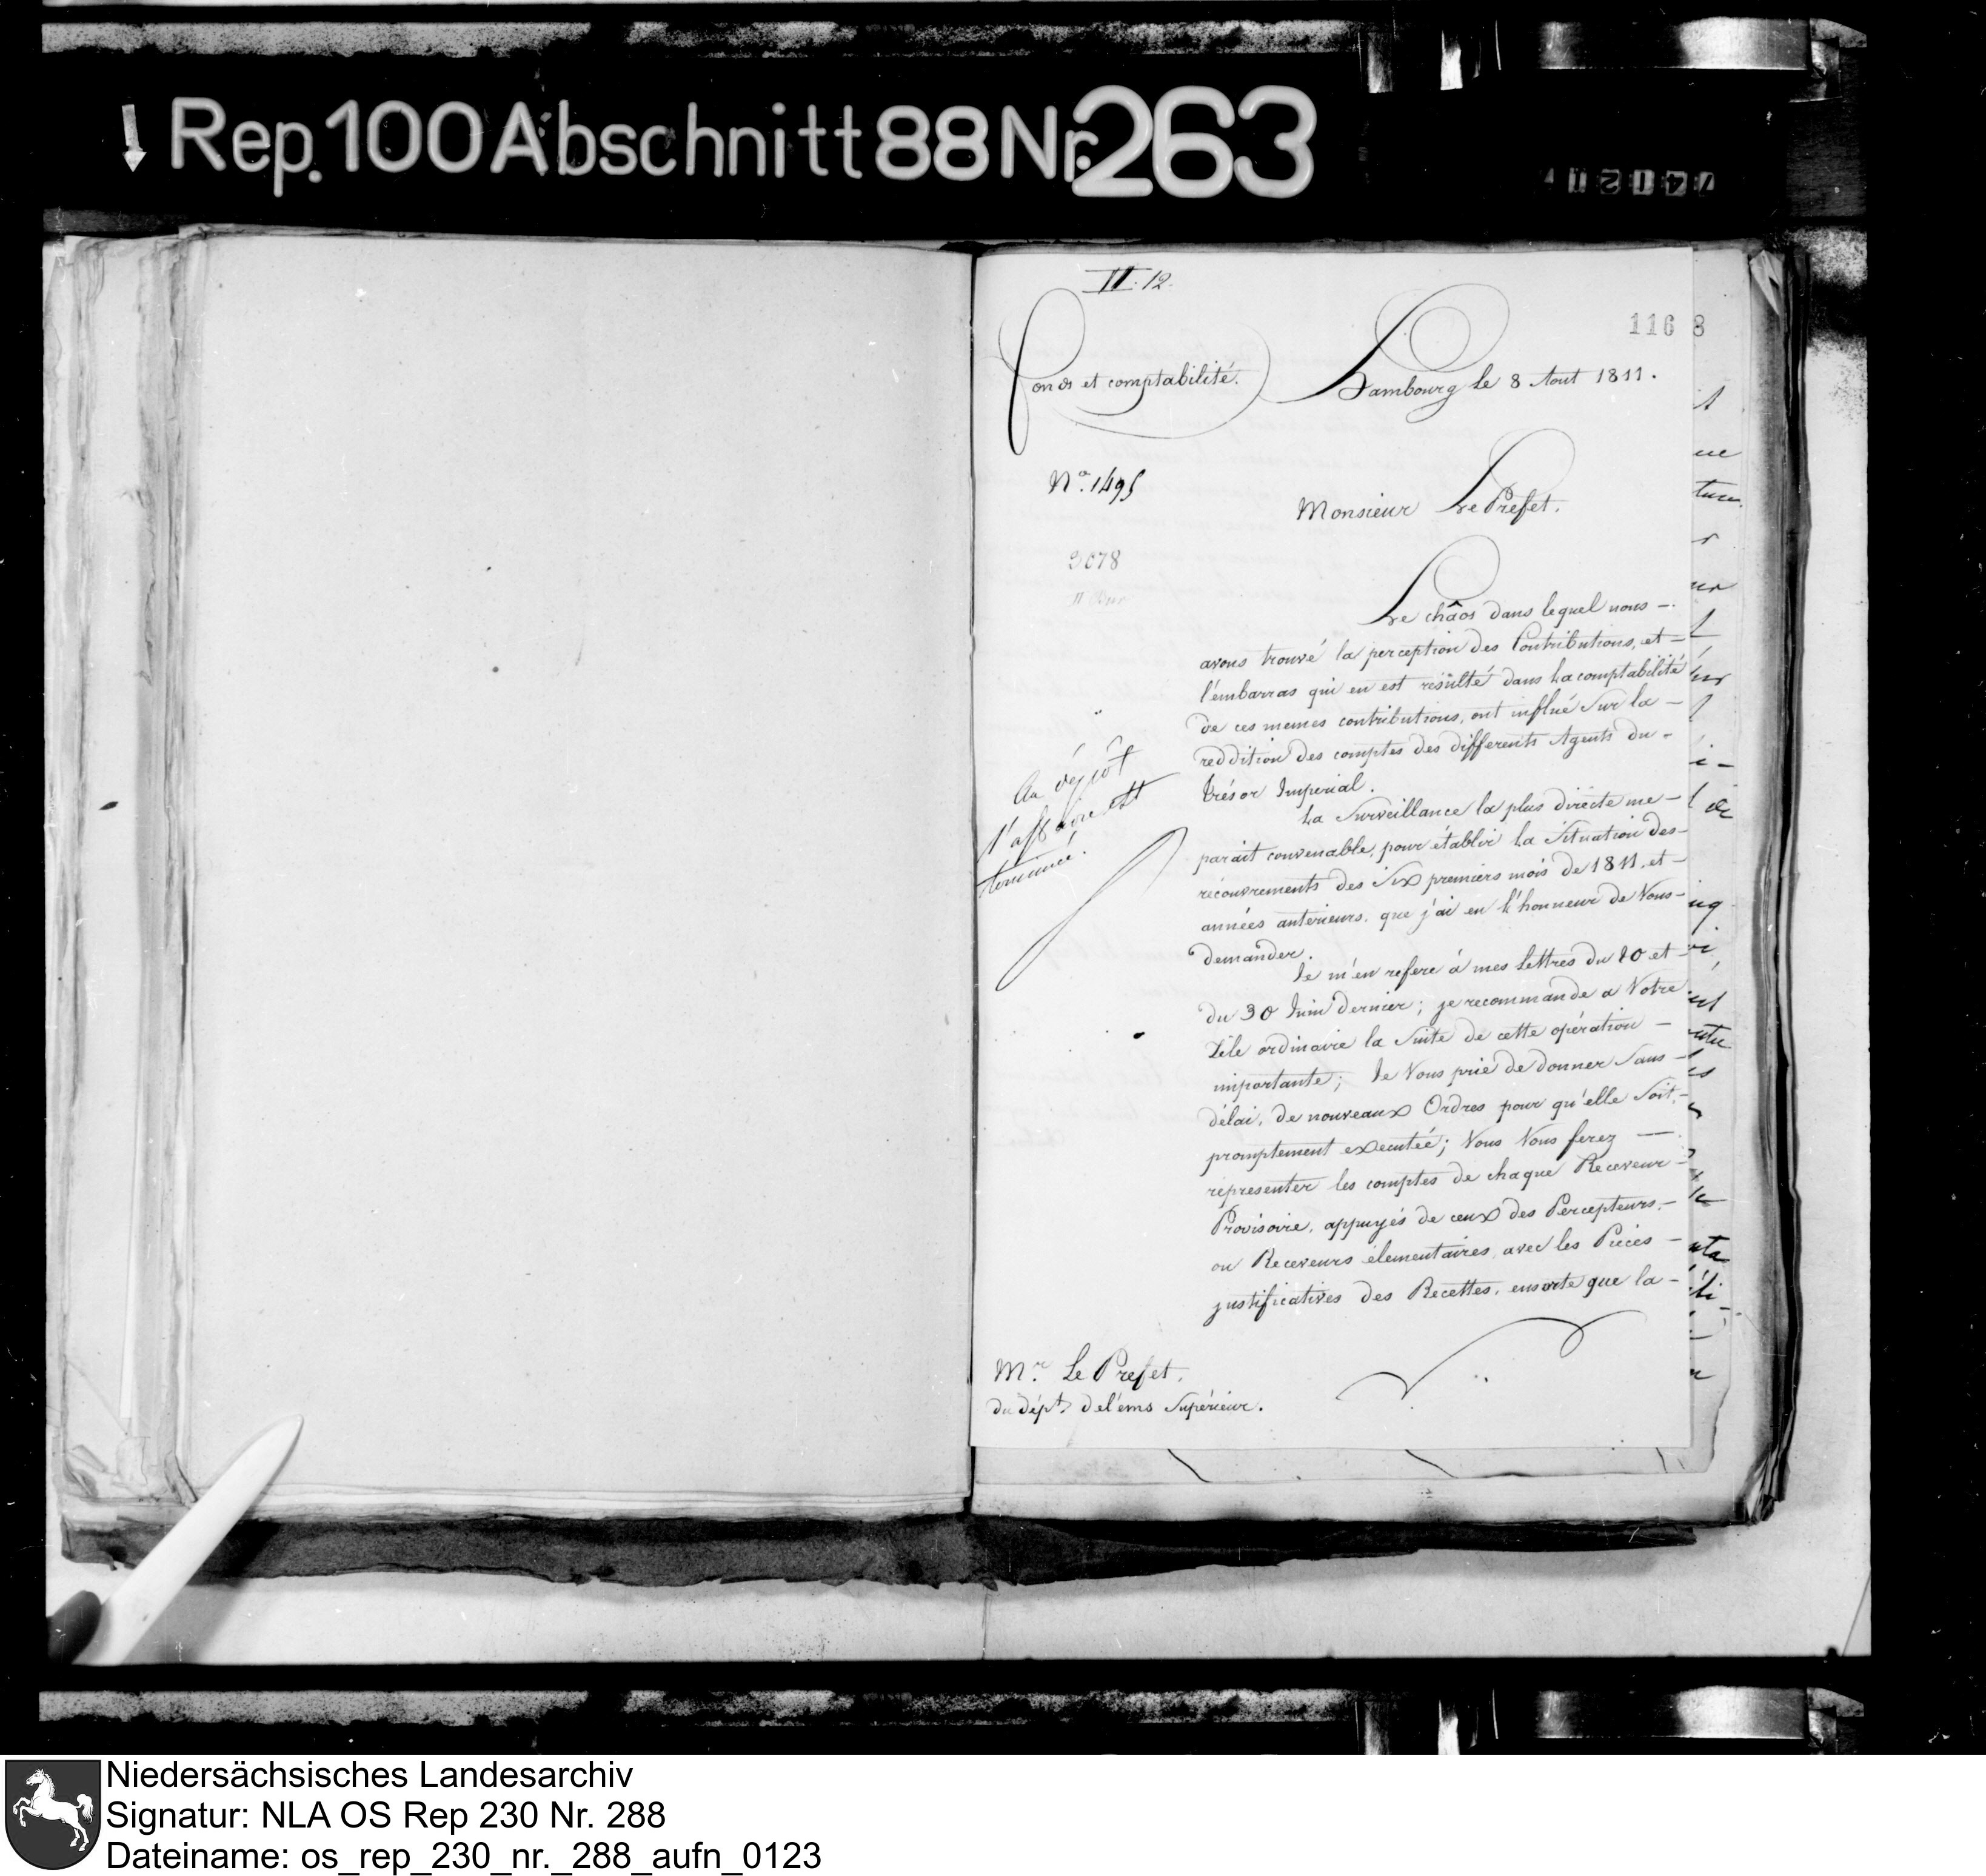 Rep. 100 Abschnitt 88 Nr. 263
II. 12.
116 8
Fonds et comptabilité.
Hambourg le 8 Aout 1811.
Nº. 1495
Monsieur Le Préfet.
3078
Le châos dans lequel nous –
avons trouvé la perception des Contributions, et –
l'embarras qui en est résulté dans La comptabilité
de ces memes contributions, ont influé Sur la –
reddition des comptes des differents Agents du –
Trésor Imperial.
Au dépôt
l'affaire est
terminée.
La Surveillance la plus directe me –
parait convenable, pour établir La Situation des –
recouvrements des Six premiers mois de 1811, et –
années anterieurs, que j'ai eu l'honneur de Vous –
demander.
Je m'en refere à mes Lettres du 20 et –
du 30 Juin dernier; je recommande a Votre
Zèle ordinaire la Suite de cette opération –
importante; Je Vous prie de donner Sans –
délai, de nouveaux Ordres pour qu'elle Soit, –
promptement executée; Vous Vous ferez —
représenter les comptes de chaque Receveur –
Provisoire, appuyés de ceux des Percepteurs, –
ou Receveurs élementaires, avec les Pieces –
justificatives des Recettes, ensorte que la –
Mr. Le Prefet,
du dépt. de l'ems Supérieur.
Niedersächsisches Landesarchiv
Signatur: NLA OS Rep 230 Nr. 288
Dateiname: os_rep_230_nr._288_aufn_0123